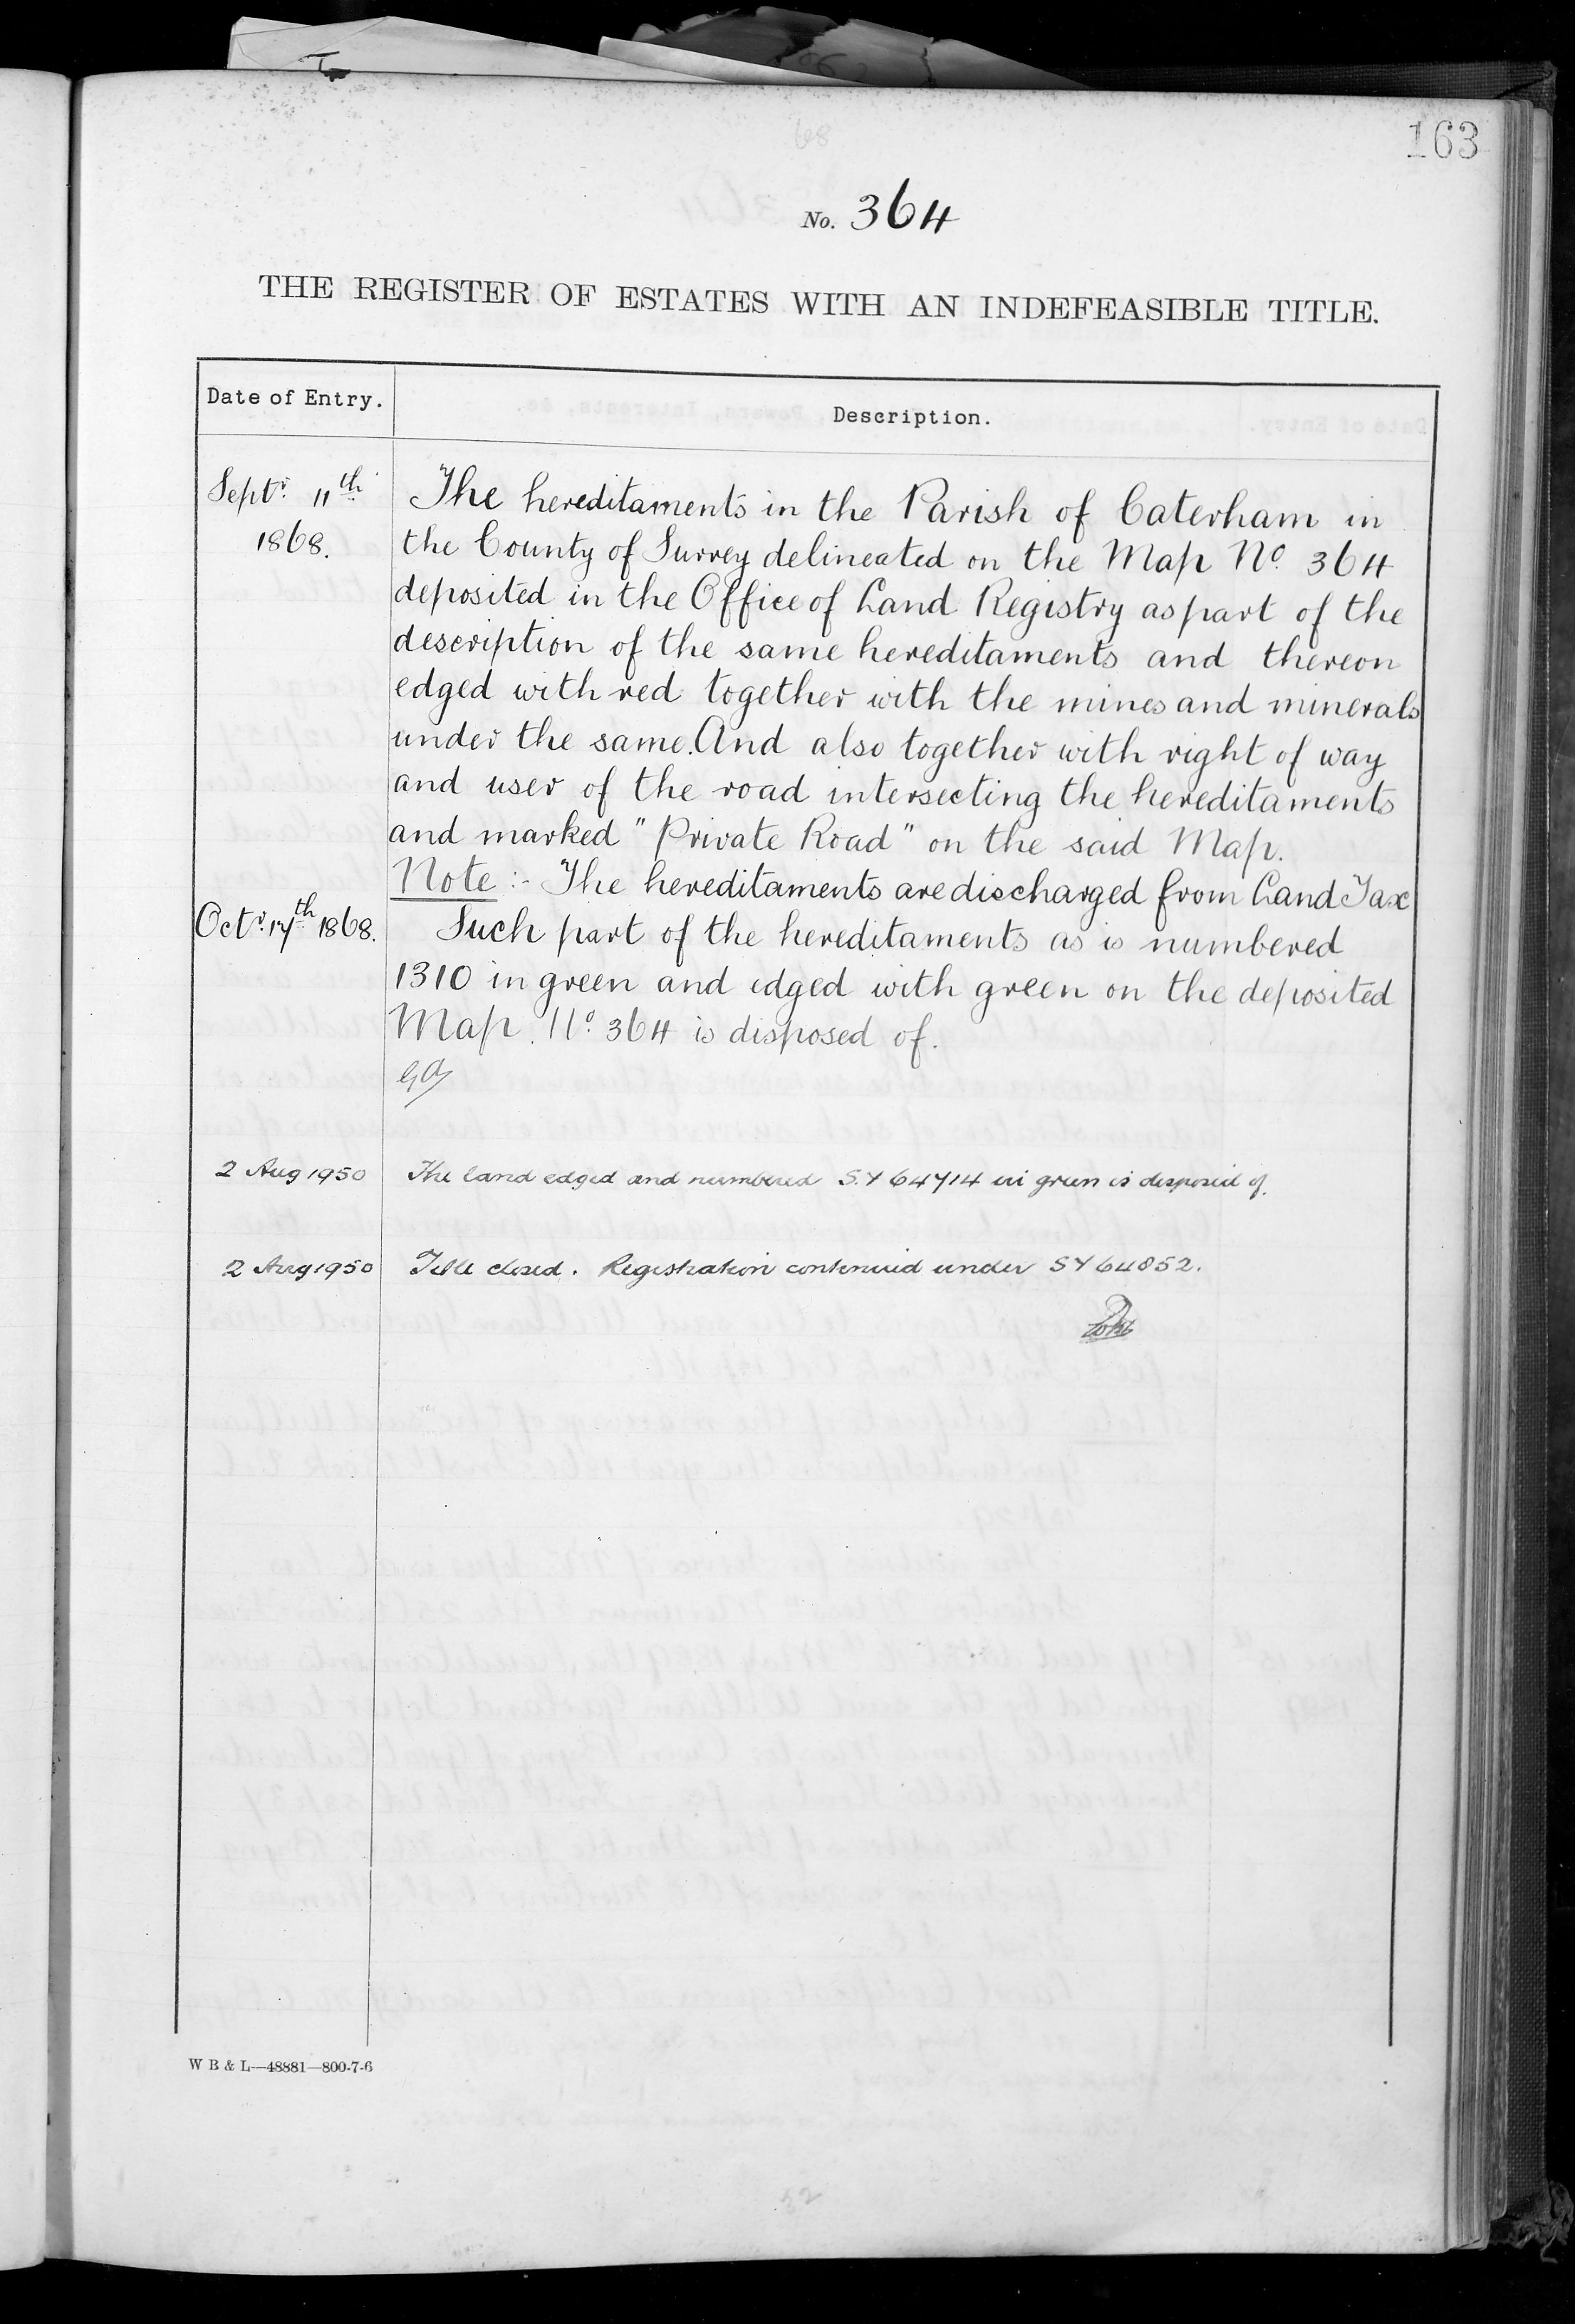 163
No. 364
THE REGISTER OF ESTATES WITH AN INDEFEASIBLE TITLE.
Date of Entry.
Description.
Septr. 11th
1868.
The hereditaments in the Parish of Caterham in
the County of Surrey delineated on the Map No. 364
deposited in the Office of Land Registry as part of the
description of the same hereditaments and thereon
edged with red together with the mines and minerals
under the same. And also together with right of way
and user of the road intersecting the hereditaments
and marked "Private Road" on the said Map.
Note :- The hereditaments are discharged from Land Tax
Octr. 17th 1868.
Such part of the hereditaments as is numbered
1310 in green and edged with green on the deposited
Map. No. 364 is disposed of.
2 Aug 1950
The land edged and numbered SY 64714 in green is disposed of.
2 Aug 1950
Title closed. Registration continued under SY 64852.
W B & L—48881—800-7-6